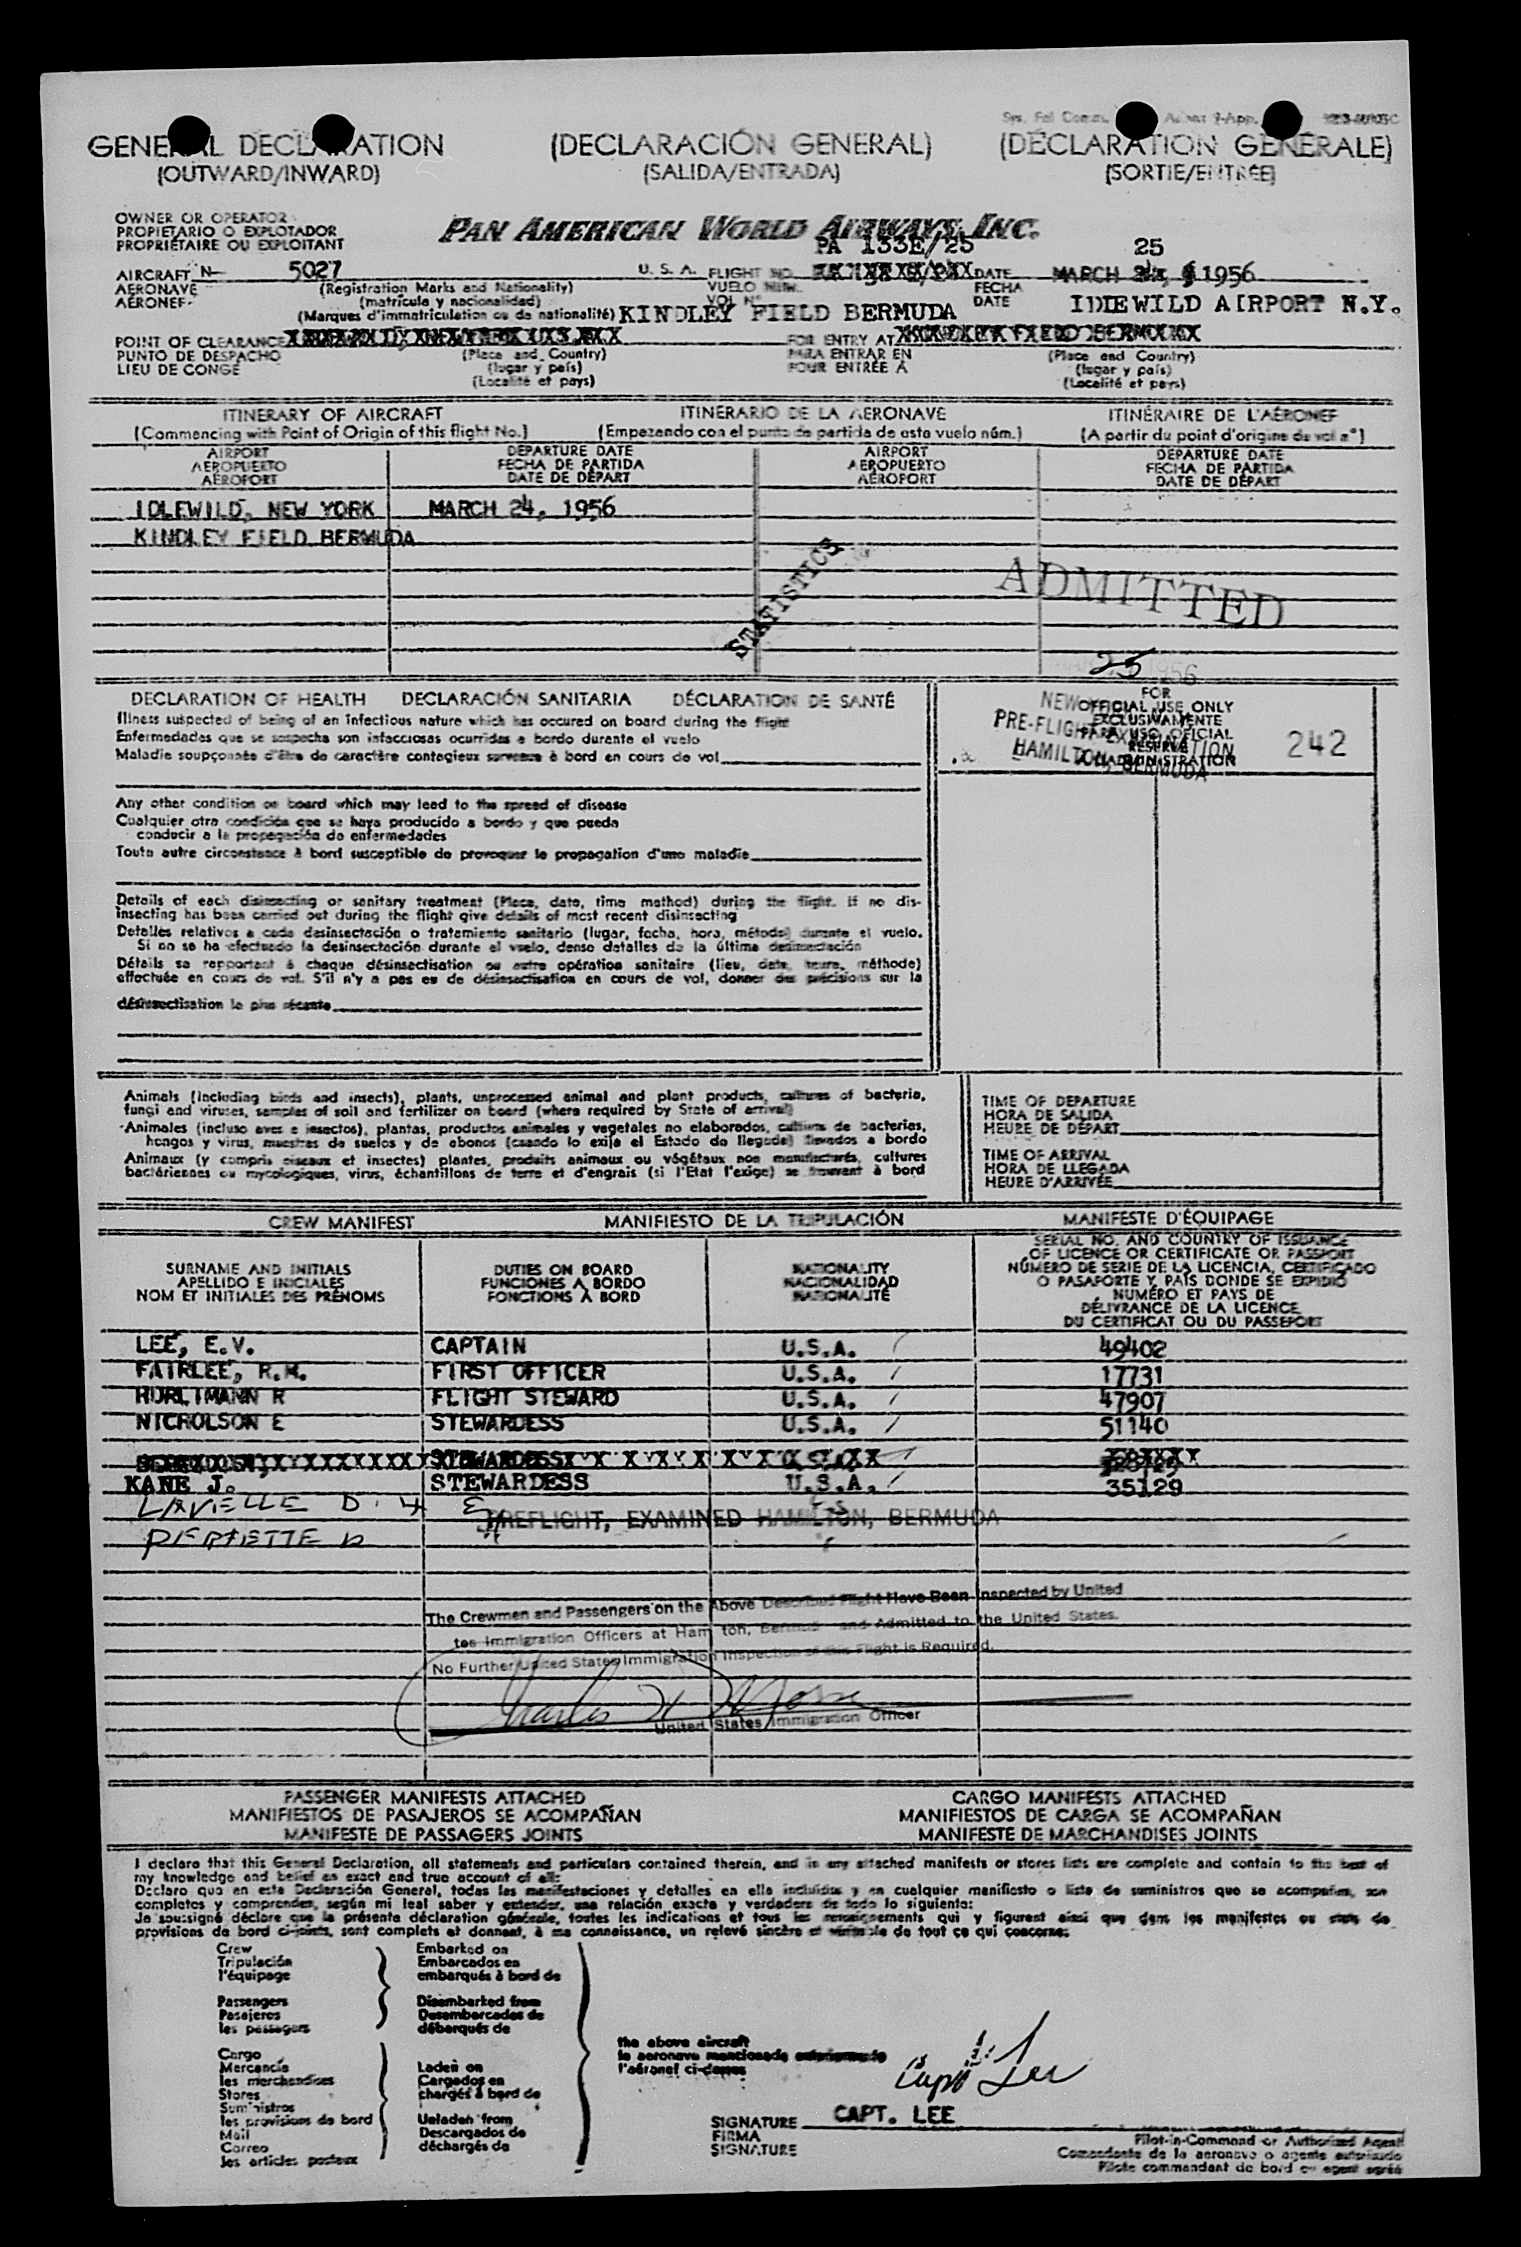 GENERAL DECLARATION (DECLARACIÓN GENERAL) (DÉCLARATION GÉNÉRALE)
(OUTWARD/INWARD) (SALIDA/ENTRADA) (SORTIE/ENTRÉE)
OWNER OR OPERATOR
PROPIETARIO O EXPLOTADOR
PROPRIÉTAIRE OU EXPLOITANT
PAN AMERICAN WORLD AIRWAYS, INC.
PA 133E/25 25
AIRCRAFT N- 5027 U. S. A. FLIGHT NO. DATE MARCH 1956
AERONAVE (Registration Marks and Nationality) VUELO NÚM. FECHA
AÉRONEF (matrícula y nacionalidad) VOL Nº DATE IDLEWILD AIRPORT N.Y.
(Marques d'immatriculation ou de nationalité) KINDLEY FIELD BERMUDA
POINT OF CLEARANCE FOR ENTRY AT
PUNTO DE DESPACHO (Place and Country) PARA ENTRAR EN (Place and Country)
LIEU DE CONGÉ (lugar y país) POUR ENTRÉE À (lugar y país)
(Localité et pays) (Localité et pays)
ITINERARY OF AIRCRAFT ITINERARIO DE LA AERONAVE ITINÉRAIRE DE L'AÉRONEF
(Commencing with Point of Origin of this flight No.) (Empezando con el punto de partida de este vuelo núm.) (A partir du point d'origine du vol nº)
AIRPORT DEPARTURE DATE AIRPORT DEPARTURE DATE
AEROPUERTO FECHA DE PARTIDA AEROPUERTO FECHA DE PARTIDA
AÉROPORT DATE DE DÉPART AÉROPORT DATE DE DÉPART
IDLEWILD, NEW YORK MARCH 24, 1956
KINDLEY FIELD BERMUDA
STATISTICS
ADMITTED
25 1956
DECLARATION OF HEALTH DECLARACIÓN SANITARIA DÉCLARATION DE SANTÉ
Illness suspected of being of an infectious nature which has occured on board during the flight
Enfermedades que se sospecha son infecciosas ocurridas a bordo durante el vuelo
Maladie soupçonnée d'être de caractère contagieux survenue à bord en cours de vol
FOR
OFFICIAL USE ONLY
EXCLUSIVAMENTE
PARA USO OFICIAL
RESERVÉ
À L'ADMINISTRATION
NEW YORK
PRE-FLIGHT EXAMINATION
HAMILTON, BERMUDA
242
Any other condition on board which may lead to the spread of disease
Cualquier otra condición que se haya producido a bordo y que pueda
conducir a la propagación de enfermedades
Toute autre circonstance à bord susceptible de provoquer la propagation d'une maladie
Details of each disinsecting or sanitary treatment (Place, date, time method) during the flight. If no dis-
insecting has been carried out during the flight give details of most recent disinsecting
Detalles relativos a cada desinsectación o tratamiento sanitario (lugar, fecha, hora, método) durante el vuelo.
Si no se ha efectuado la desinsectación durante el vuelo, dense detalles de la última desinsectación
Détails se rapportant à chaque désinsectisation ou autre opération sanitaire (lieu, date, heure, méthode)
effectuée en cours de vol. S'il n'y a pas eu de désinsectisation en cours de vol, donner des précisions sur la
désinsectisation la plus récente
Animals (including birds and insects), plants, unprocessed animal and plant products, cultures of bacteria,
fungi and viruses, samples of soil and fertilizer on board (where required by State of arrival)
Animales (incluso aves e insectos), plantas, productos animales y vegetales no elaborados, cultivos de bacterias,
hongos y virus, muestras de suelos y de abonos (cuando lo exija el Estado de llegada) llevados a bordo
Animaux (y compris oiseaux et insectes) plantes, produits animaux ou végétaux non manufacturés, cultures
bactériennes ou mycologiques, virus, échantillons de terre et d'engrais (si l'Etat l'exige) se trouvant à bord
TIME OF DEPARTURE
HORA DE SALIDA
HEURE DE DÉPART
TIME OF ARRIVAL
HORA DE LLEGADA
HEURE D'ARRIVÉE
CREW MANIFEST MANIFIESTO DE LA TRIPULACIÓN MANIFESTE D'ÉQUIPAGE
SURNAME AND INITIALS
APELLIDO E INICIALES
NOM ET INITIALES DES PRÉNOMS
DUTIES ON BOARD
FUNCIONES A BORDO
FONCTIONS À BORD
NATIONALITY
NACIONALIDAD
NATIONALITÉ
SERIAL NO. AND COUNTRY OF ISSUANCE
OF LICENCE OR CERTIFICATE OR PASSPORT
NÚMERO DE SERIE DE LA LICENCIA, CERTIFICADO
O PASAPORTE Y PAÍS DONDE SE EXPIDIÓ
NUMÉRO ET PAYS DE
DÉLIVRANCE DE LA LICENCE
DU CERTIFICAT OU DU PASSEPORT
LEE, E.V. CAPTAIN U.S.A. 49402
FAIRLEE, R.M. FIRST OFFICER U.S.A. 17731
HURLIMANN R FLIGHT STEWARD U.S.A. 47907
NICHOLSON E STEWARDESS U.S.A. 51140
STEWARDESS
KANE J. STEWARDESS U.S.A. 35129
LAVIELLE D. H
PREFLIGHT, EXAMINED HAMILTON, BERMUDA
The Crewmen and Passengers on the Above Described Flight Have Been Inspected by United
tes Immigration Officers at Ham ton, Bermuda and Admitted to the United States.
No Further United States Immigration Inspection of this Flight is Required.
Charles
United States Immigration Officer
PASSENGER MANIFESTS ATTACHED CARGO MANIFESTS ATTACHED
MANIFIESTOS DE PASAJEROS SE ACOMPAÑAN MANIFIESTOS DE CARGA SE ACOMPAÑAN
MANIFESTE DE PASSAGERS JOINTS MANIFESTE DE MARCHANDISES JOINTS
I declare that this General Declaration, all statements and particulars contained therein, and in any attached manifests or stores lists are complete and contain to the best of
my knowledge and belief an exact and true account of all:
Declaro que en esta Declaración General, todas las manifestaciones y detalles en ella incluidos y en cualquier manifiesto o lista de suministros que se acompañen, son
completos y comprenden, según mi leal saber y entender, una relación exacta y verdadera de todo lo siguiente:
Je soussigné déclare que la présente déclaration générale, toutes les indications et tous les renseignements qui y figurent ainsi que dans les manifestes ou états de
provisions de bord ci-joints, sont complets et donnent, à ma connaissance, un relevé sincère et véritable de tout ce qui concerne:
Crew
Tripulación
l'équipage
Passengers
Pasajeros
les passagers
Cargo
Mercancía
les merchandises
Stores
Suministros
les provisions de bord
Mail
Correo
les articles postaux
Embarked on
Embarcados en
embarqués à bord de
Disembarked from
Desembarcados de
débarqués de
Laden on
Cargados en
chargés à bord de
Unladen from
Descargados de
déchargés de
the above aircraft
la aeronave mencionada anteriormente
l'aéronef ci-dessus
Capt Lee
SIGNATURE CAPT. LEE
FIRMA
SIGNATURE
Pilot-in-Command or Authorized Agent
Comandante de la aeronave o agente autorizado
Pilote commandant de bord ou agent agréé